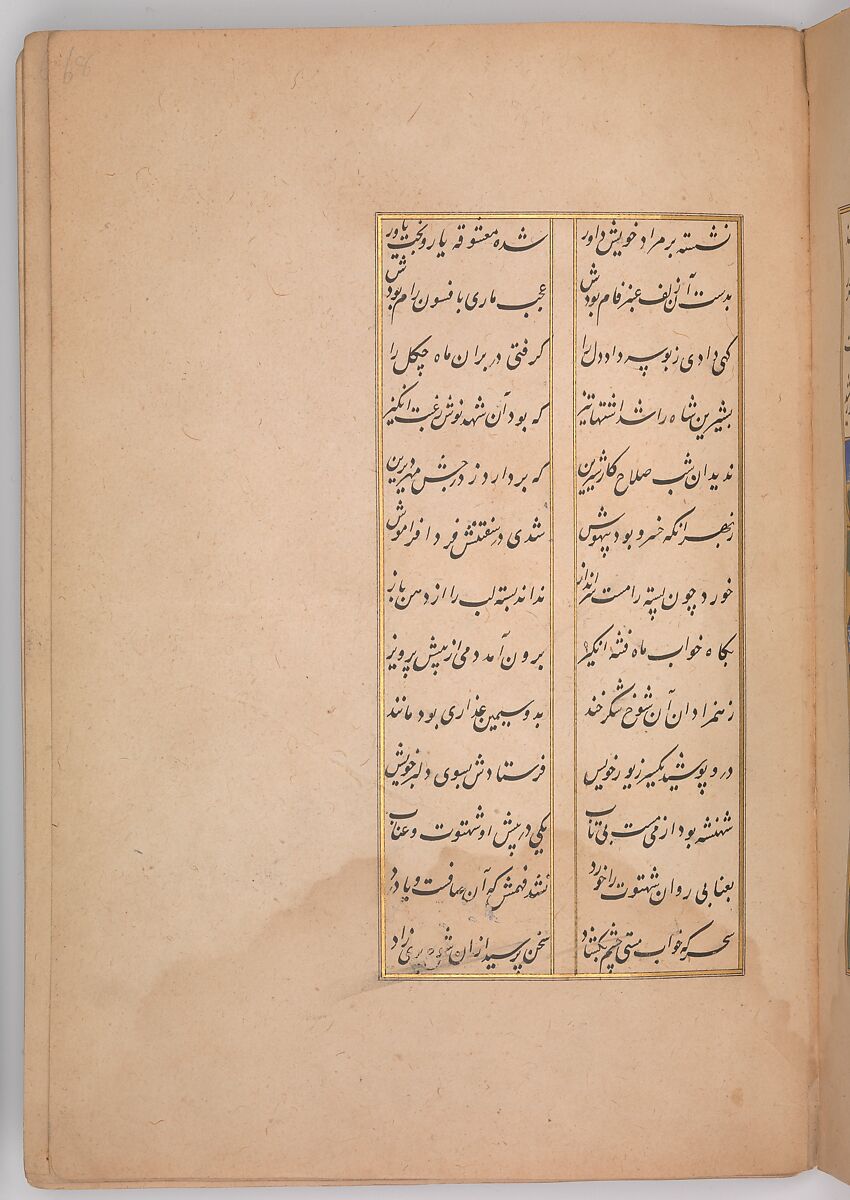 نشسته بر مراد خویش داور شده معشوقه یار و بخت یاور
بدست آن زلف عنبر فام بودش عجب ماری بافسون رام بودش
کهی دادی ز بوسه داد دل را کرفتی در بر ان ماه چکل را
بشیرین شاه را شد اشتها تیز که بود آن شهد نوش رغبت انکیز
ندید ان شب صلاح کار شیرین که بردارد ز درجش مهر دیرین
ز بهر انکه خسرو بود بیهوش شدی در سفتنش فردا فراموش
خورد چون پسته را مست سرانداز نداند بسته لب را از دهن باز
بکاه خواب ماه فتنه انکیز برون آمد دمی از پیش پرویز
ز همزادان آن شوخ شکرخند بدو سیمین عذاری بود مانند
درو پوشید یکسر زیور خویش فرستادش بسوی دلبر خویش
شهنشه بود از می مست بی تاب یکی در پیش او شهتوت و عناب
بعنابی روان شهتوت را خورد نشد فهمش که آن صافست و یا درد
سحر که خواب مستی چشم بکشاد سخن پرسید از ان پری زاد